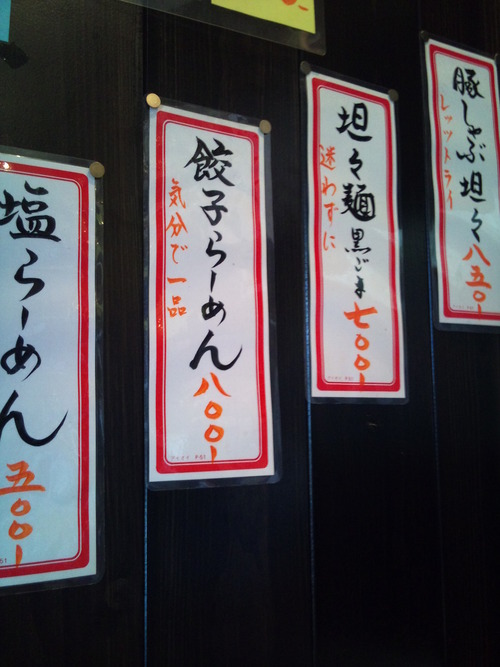 豚しゃぶ坦々八五〇ー
レッツトライ
坦々麺黒ごま七〇〇ー
迷わずに
餃子らーめん八〇〇ー
気分で一品
塩らーめん五〇〇ー